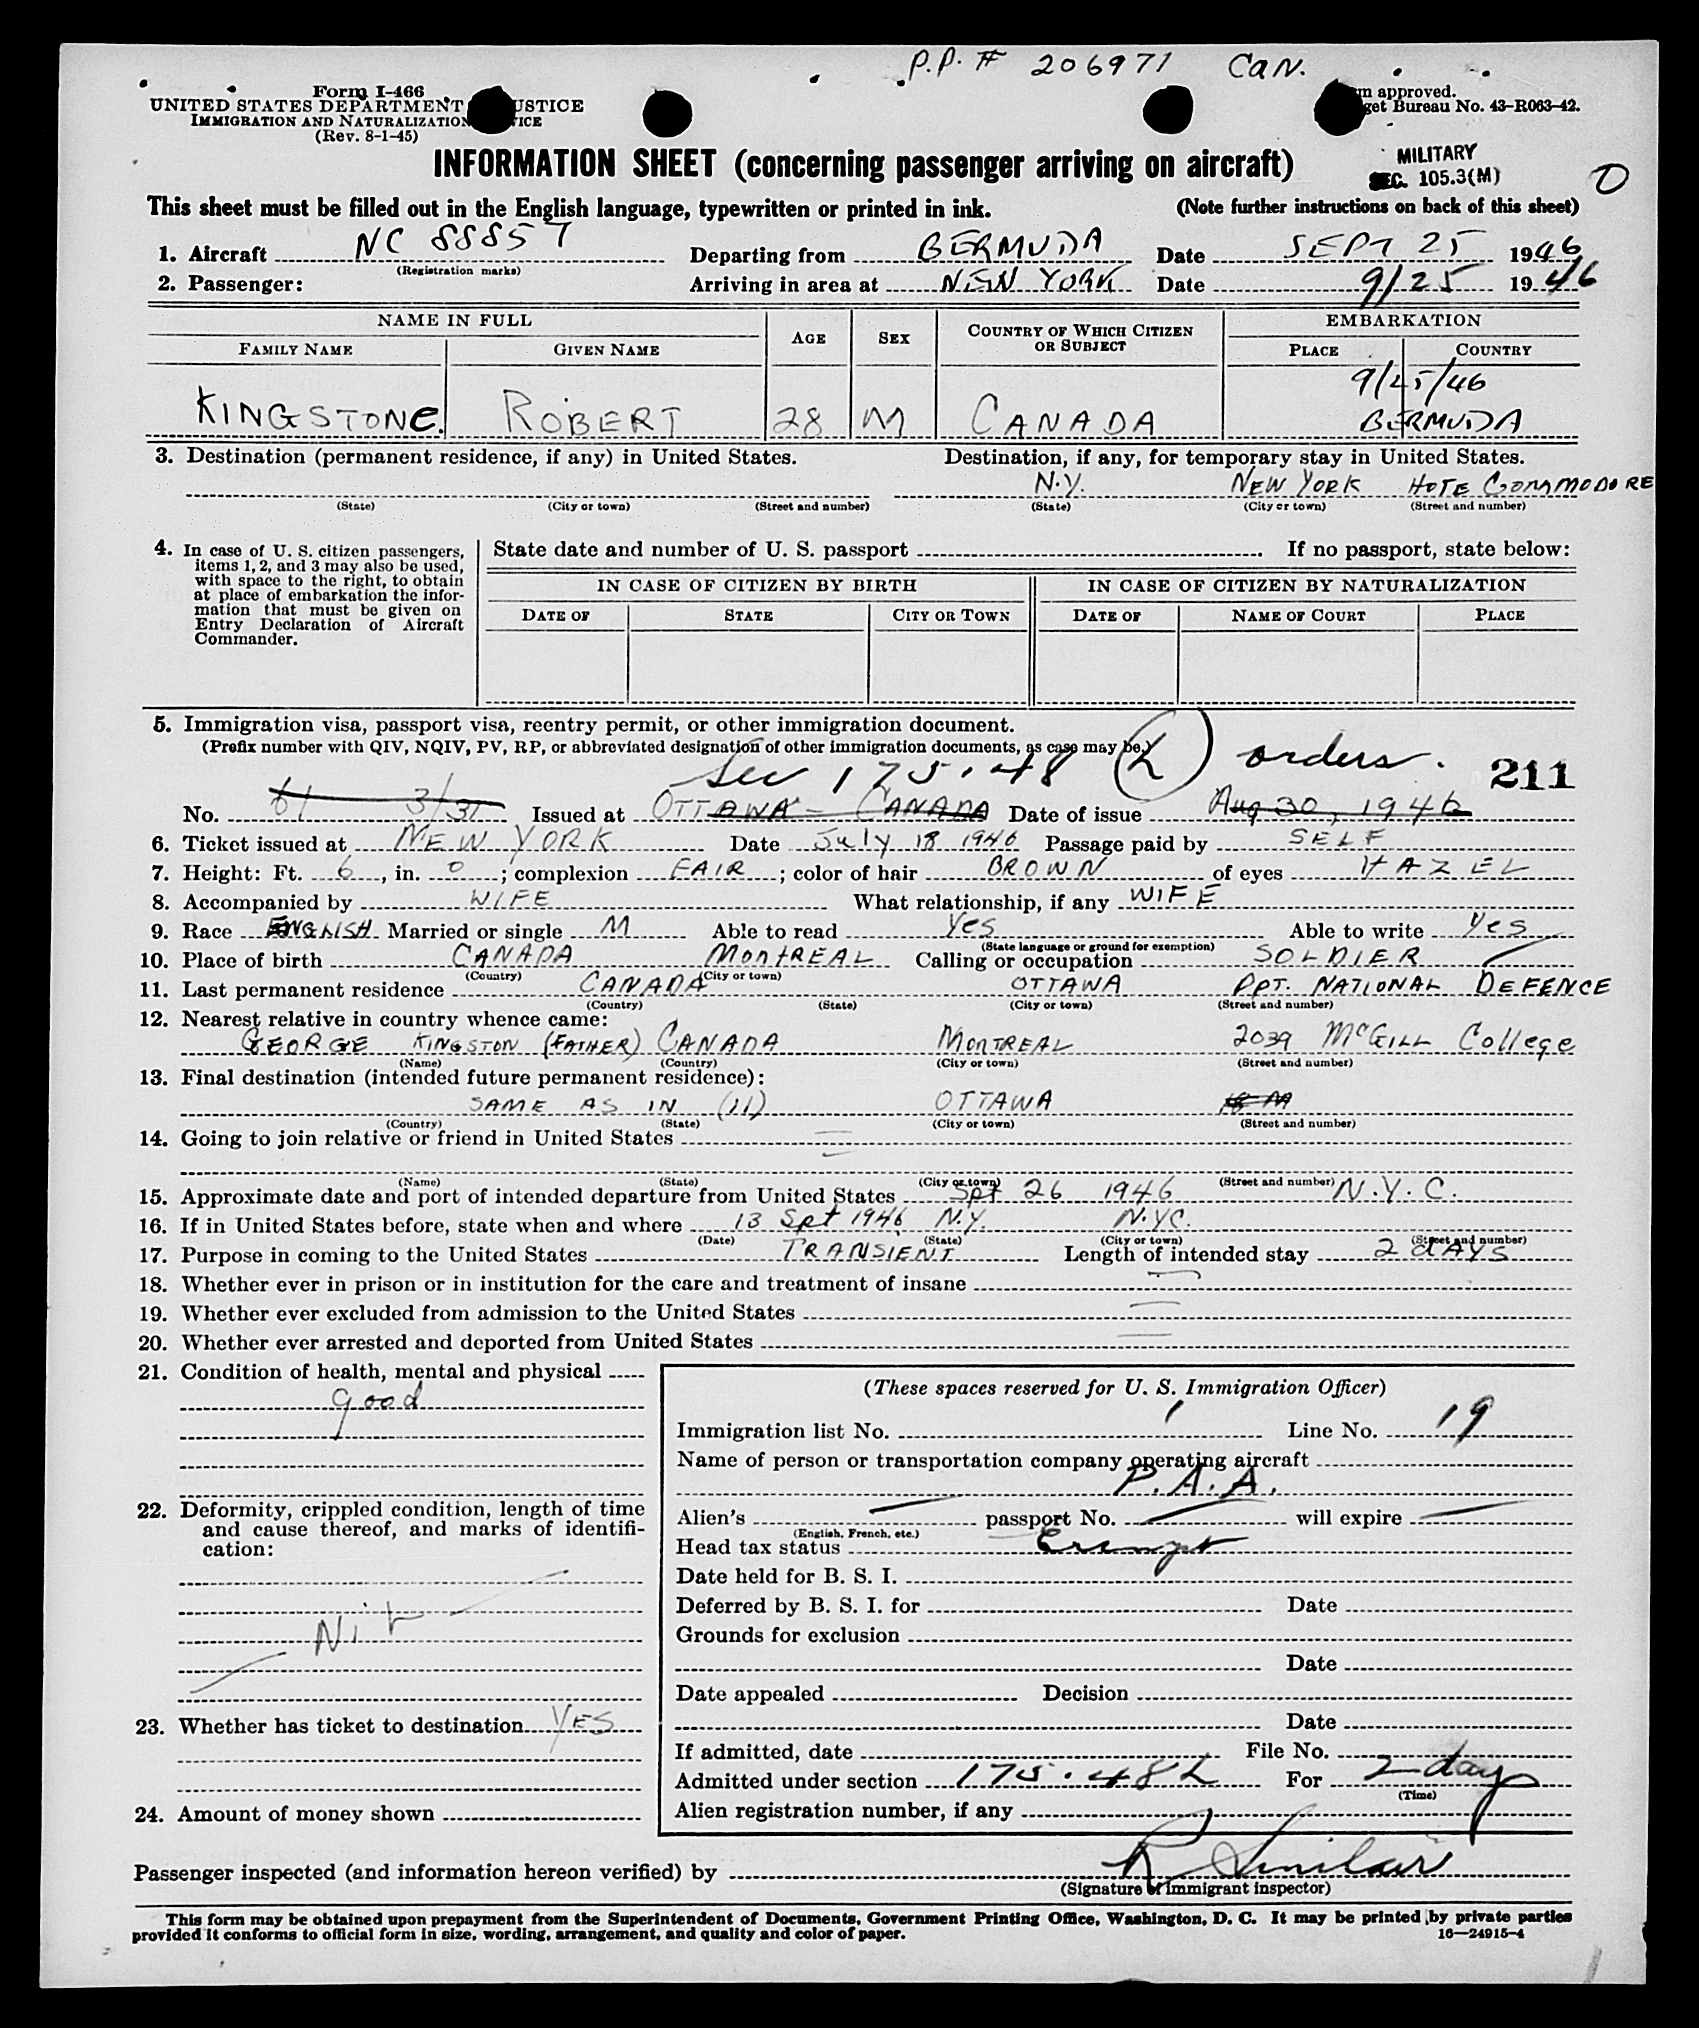 P.P. # 206971 CAN.
Form I-466
UNITED STATES DEPARTMENT JUSTICE
IMMIGRATION AND NATURALIZATION
(Rev. 8-1-45)
approved.
Bureau No. 43-R063-42.
INFORMATION SHEET (concerning passenger arriving on aircraft)
MILITARY
SEC. 105.3(M)
This sheet must be filled out in the English language, typewritten or printed in ink.
(Note further instructions on back of this sheet)
1. Aircraft NC 88857 Departing from BERMUDA Date SEPT 25 1946
(Registration marks)
2. Passenger: Arriving in area at NEW YORK Date 9/25 1946
NAME IN FULL AGE SEX COUNTRY OF WHICH CITIZEN OR SUBJECT EMBARKATION
FAMILY NAME GIVEN NAME PLACE COUNTRY
9/25/46
KINGSTONE. ROBERT 28 M CANADA BERMUDA
3. Destination (permanent residence, if any) in United States. Destination, if any, for temporary stay in United States.
N.Y. NEW YORK HOTE COMMODORE
(State) (City or town) (Street and number) (State) (City or town) (Street and number)
4. In case of U. S. citizen passengers,
items 1, 2, and 3 may also be used,
with space to the right, to obtain
at place of embarkation the infor-
mation that must be given on
Entry Declaration of Aircraft
Commander.
State date and number of U. S. passport If no passport, state below:
IN CASE OF CITIZEN BY BIRTH IN CASE OF CITIZEN BY NATURALIZATION
DATE OF STATE CITY OR TOWN DATE OF NAME OF COURT PLACE
5. Immigration visa, passport visa, reentry permit, or other immigration document.
(Prefix number with QIV, NQIV, PV, RP, or abbreviated designation of other immigration documents, as case may be.)
Sec 175.48 (L) orders. 211
No. 61 3/31 Issued at OTTAWA - CANADA Date of issue Aug 30, 1946
6. Ticket issued at NEW YORK Date July 18 1946 Passage paid by SELF
7. Height: Ft. 6, in. 0; complexion FAIR; color of hair BROWN of eyes HAZEL
8. Accompanied by WIFE What relationship, if any WIFE
9. Race ENGLISH Married or single M Able to read Yes Able to write Yes
(State language or ground for exemption)
10. Place of birth CANADA MONTREAL Calling or occupation SOLDIER
(Country) (City or town)
11. Last permanent residence CANADA OTTAWA DPT. NATIONAL DEFENCE
(Country) (State) (City or town) (Street and number)
12. Nearest relative in country whence came:
GEORGE KINGSTON (FATHER) CANADA MONTREAL 2039 McGILL College
(Name) (Country) (City or town) (Street and number)
13. Final destination (intended future permanent residence):
SAME AS IN (11) OTTAWA
(Country) (State) (City or town) (Street and number)
14. Going to join relative or friend in United States
(Name) (State) (City or town) (Street and number)
15. Approximate date and port of intended departure from United States Spt 26 1946 N.Y.C.
16. If in United States before, state when and where 13 Spt 1946 N.Y. N.YC.
(Date) (State) (City or town) (Street and number)
17. Purpose in coming to the United States TRANSIENT Length of intended stay 2 dAYS
18. Whether ever in prison or in institution for the care and treatment of insane
19. Whether ever excluded from admission to the United States
20. Whether ever arrested and deported from United States
21. Condition of health, mental and physical
good
22. Deformity, crippled condition, length of time
and cause thereof, and marks of identifi-
cation:
Nil
23. Whether has ticket to destination YES
24. Amount of money shown
(These spaces reserved for U. S. Immigration Officer)
Immigration list No. 1 Line No. 19
Name of person or transportation company operating aircraft
P.A.A.
Alien's passport No. will expire
(English, French, etc.)
Head tax status Exempt
Date held for B. S. I.
Deferred by B. S. I. for Date
Grounds for exclusion
Date
Date appealed Decision
Date
If admitted, date File No.
Admitted under section 175.48L For 2 day
(Time)
Alien registration number, if any
Passenger inspected (and information hereon verified) by R Sinclair
(Signature of immigrant inspector)
This form may be obtained upon prepayment from the Superintendent of Documents, Government Printing Office, Washington, D. C. It may be printed by private parties
provided it conforms to official form in size, wording, arrangement, and quality and color of paper.
16—24915-4